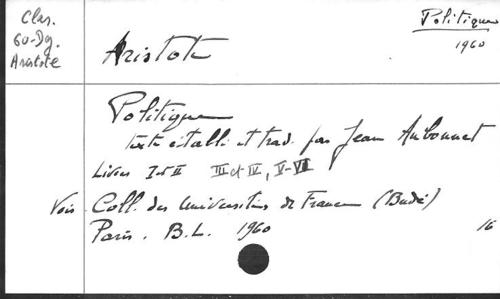 Clas.
60-Dg.
Aristote
Aristote
Politique
1960
Politique
texte établi et trad. par Jean Aubonnet
Livres I et II III et IV, V-VI
Voir Coll. des Universités de France (Budé)
Paris. B.L. 1960 16